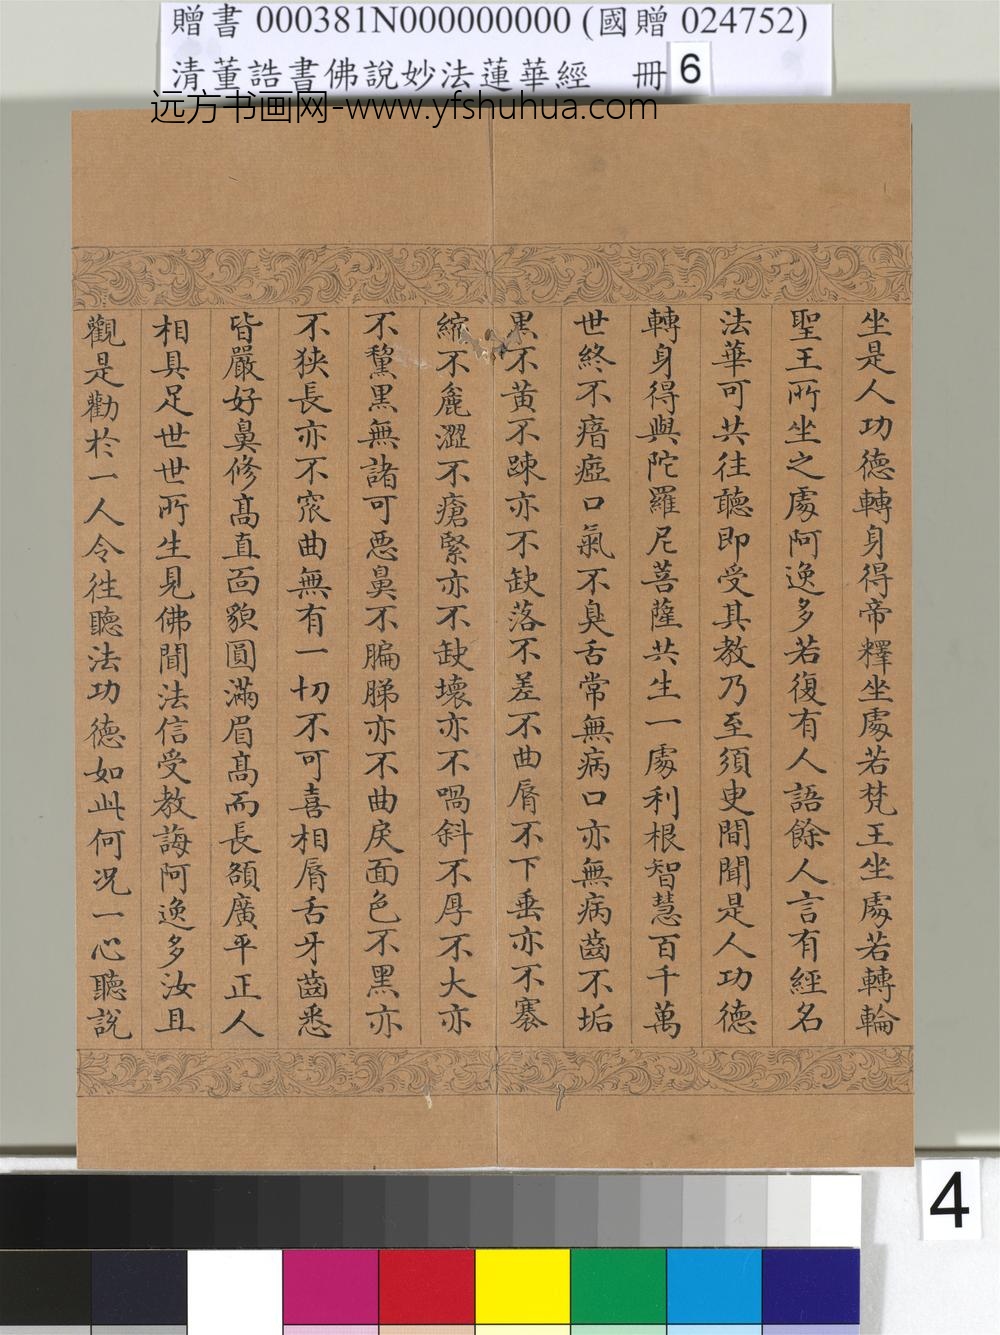 贈書 000381N000000000 (國贈 024752)
清董誥書佛說妙法蓮華經 冊 6
远方书画网-www.yfshuhua.com
坐是人功德轉身得帝釋坐處若梵王坐處若轉輪
聖王所坐之處阿逸多若復有人語餘人言有經名
法華可共往聽即受其教乃至須臾間聞是人功德
轉身得與陀羅尼菩薩共生一處利根智慧百千萬
世終不瘖瘂口氣不臭舌常無病口亦無病齒不垢
黑不黃不踈亦不缺落不差不曲脣不下垂亦不褰
縮不麁澀不瘡緊亦不缺壞亦不喎斜不厚不大亦
不黧黑無諸可惡鼻不匾㔸亦不曲戾面色不黑亦
不狹長亦不窊曲無有一切不可喜相脣舌牙齒悉
皆嚴好鼻修高直面貌圓滿眉高而長額廣平正人
相具足世世所生見佛聞法信受教誨阿逸多汝且
觀是勸於一人令往聽法功德如此何况一心聽說
4